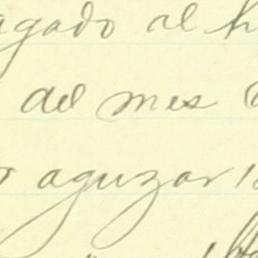 agado al
del mes
aguzar 1